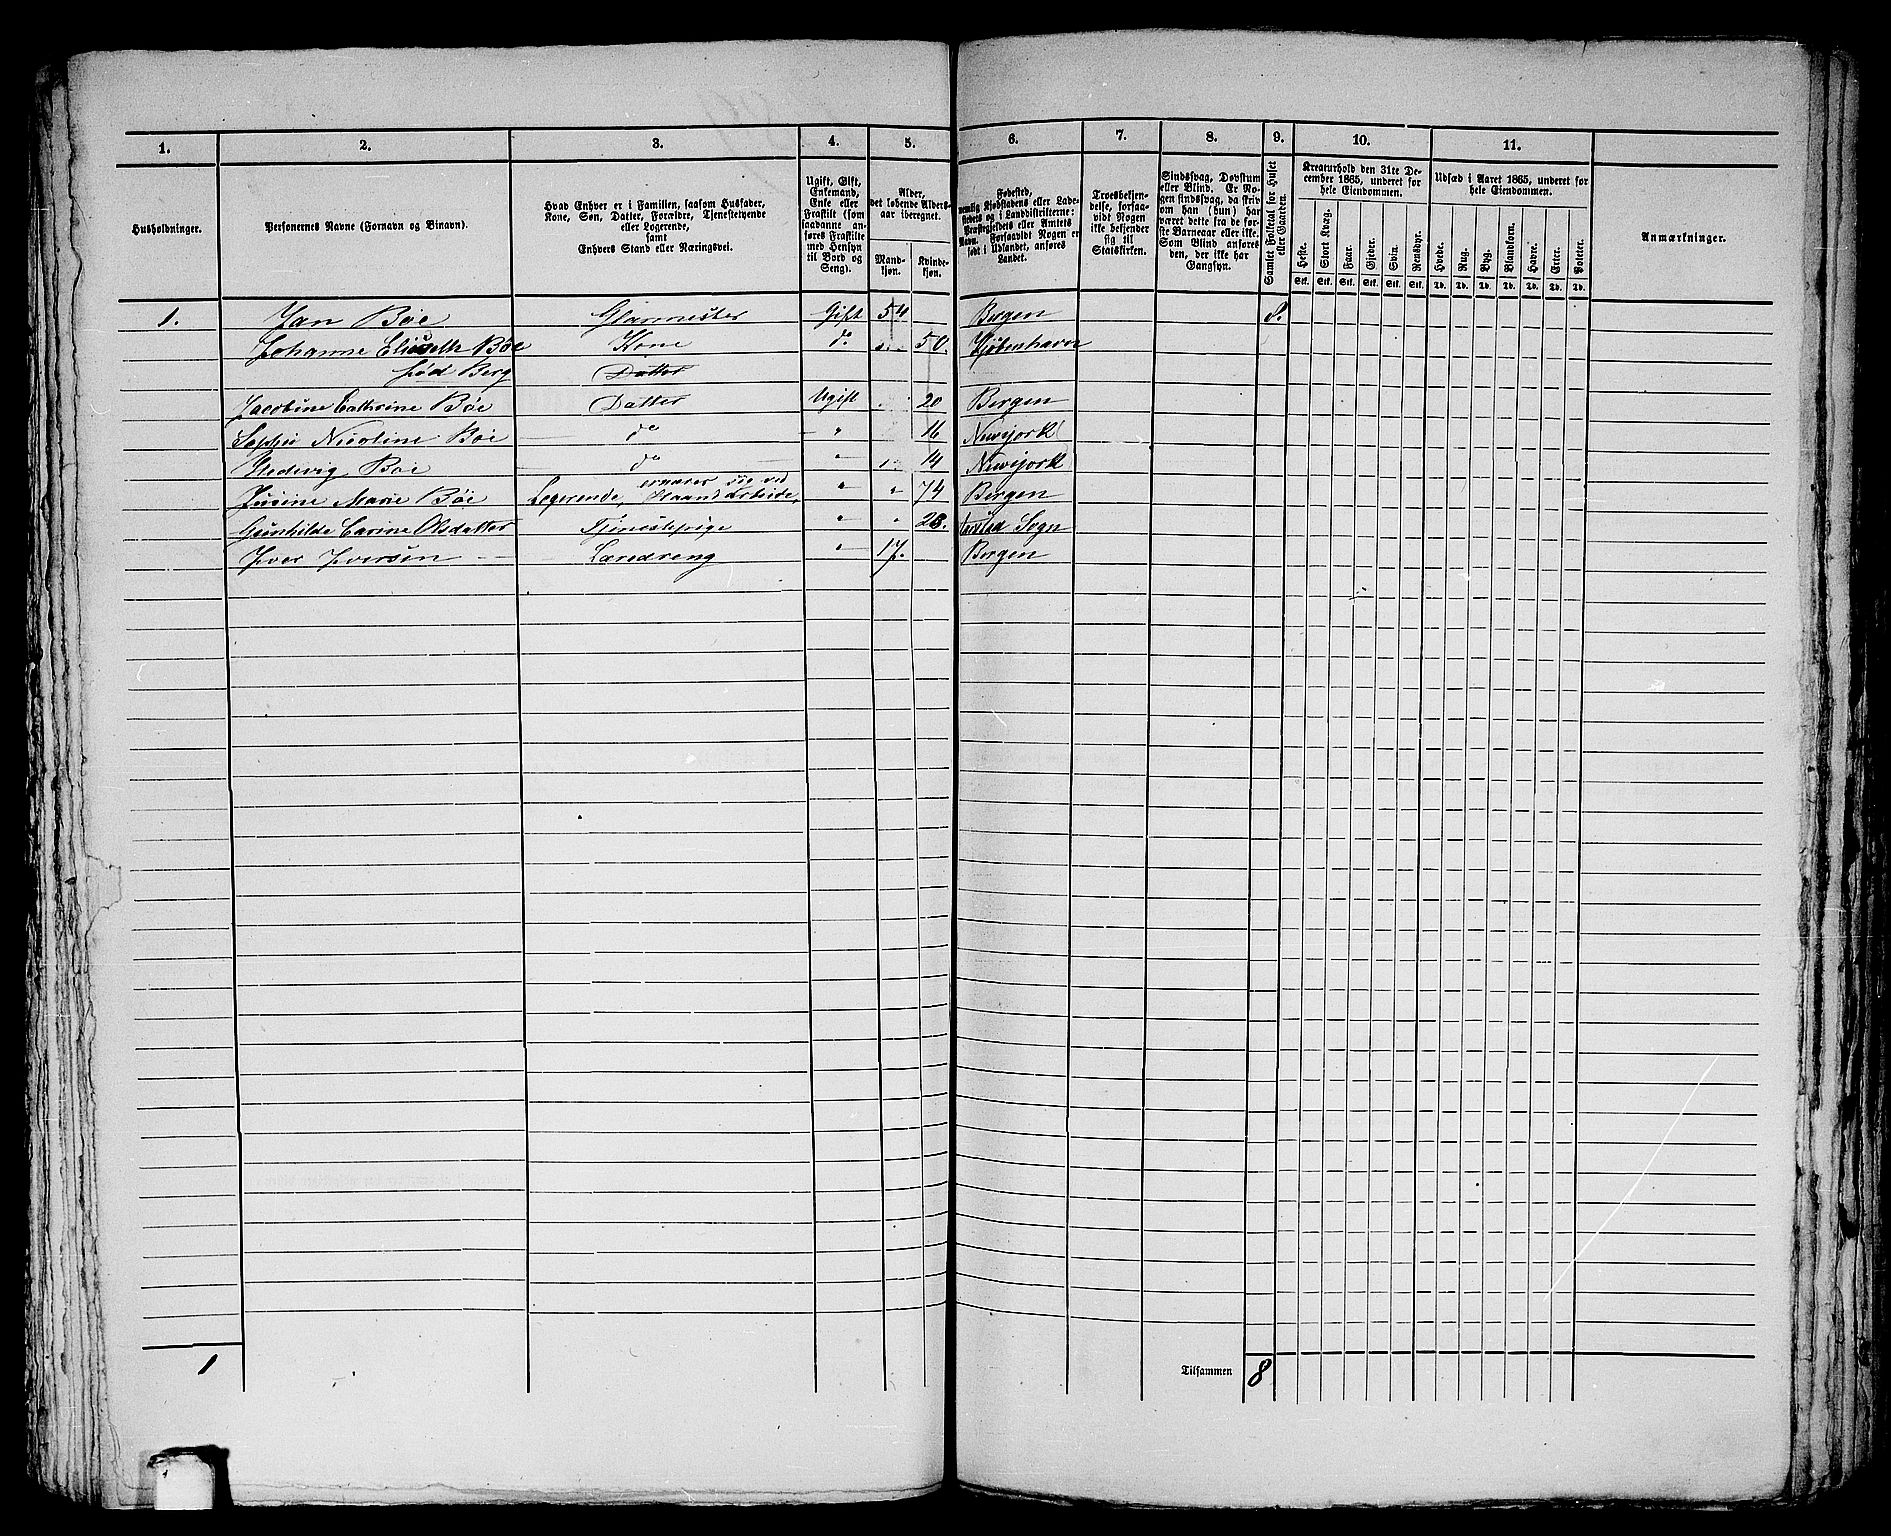 1. 2. 3. 4. 5. 6. 7. 8. 9. 10. 11.
Husholdninger.
Personernes Navne (Fornavn og Binavn).
Hvad Enhver er i Familien, saasom Husfader,
Kone, Søn, Datter, Forældre, Tjenestetyende
eller Logerende,
samt
Enhvers Stand eller Næringsvei.
Ugift, Gift,
Enkemand,
Enke eller
Fraskilt (som
saadanne an-
føres Fraskilte
med Hensyn
til Bord og
Seng).
Alder,
det løbende Alders-
aar iberegnet.
Mand-
kjøn.
Kvinde-
kjøn.
Fødested,
nemlig Kjøbstadens eller Lade-
stedets og i Landdistrikterne:
Præstegjeldets eller Amtets
Navn. Forsaavidt Nogen er
født i Udlandet, anføres
Landet.
Troesbekjen-
delse, forsaa-
vidt Nogen
ikke bekjender
sig til
Statskirken.
Sindssvag, Døvstum
eller Blind. Er No-
gen sindssvag, da skriv
om han (hun) har
været dette fra de før-
ste Barneaar eller ikke.
Som Blind anføres
den, der ikke har
Gangsyn.
Samlet Folketal for Huset
eller Gaarden.
Kreaturhold den 31te De-
cember 1865, underet for
hele Eiendommen.
Heste. Stort Kvæg. Faar. Gjeder. Svin. Rensdyr.
Stk. Stk. Stk. Stk. Stk. Stk.
Udsæd i Aaret 1865, underet for
hele Eiendommen.
Hvede. Rug. Byg. Blandkorn. Havre. Erter. Poteter.
Td. Td. Td. Td. Td. Td. Td.
Anmærkninger.
1. Jan Böe Glarmester Gift 54 Bergen 8.
Johanne Elisabeth Böe Kone do „ 50. Kjöbenhavn
föd Berg Datter
Jacobine Cathrine Böe Datter Ugift 20 Bergen
Sophie Nicoline Böe do „ 16 Newijork
Hedevig Böe do „ 14 Newijork
Jusine Marie Böe Logerende, ernærer sig ved Haandarbeide, „ „ 74 Bergen
Gunhilde Carine Olsdatter Tjenestepige „ „ 23. Sogn
Iver Iversön Læredreng „ 17. Bergen
1 Tilsammen 8